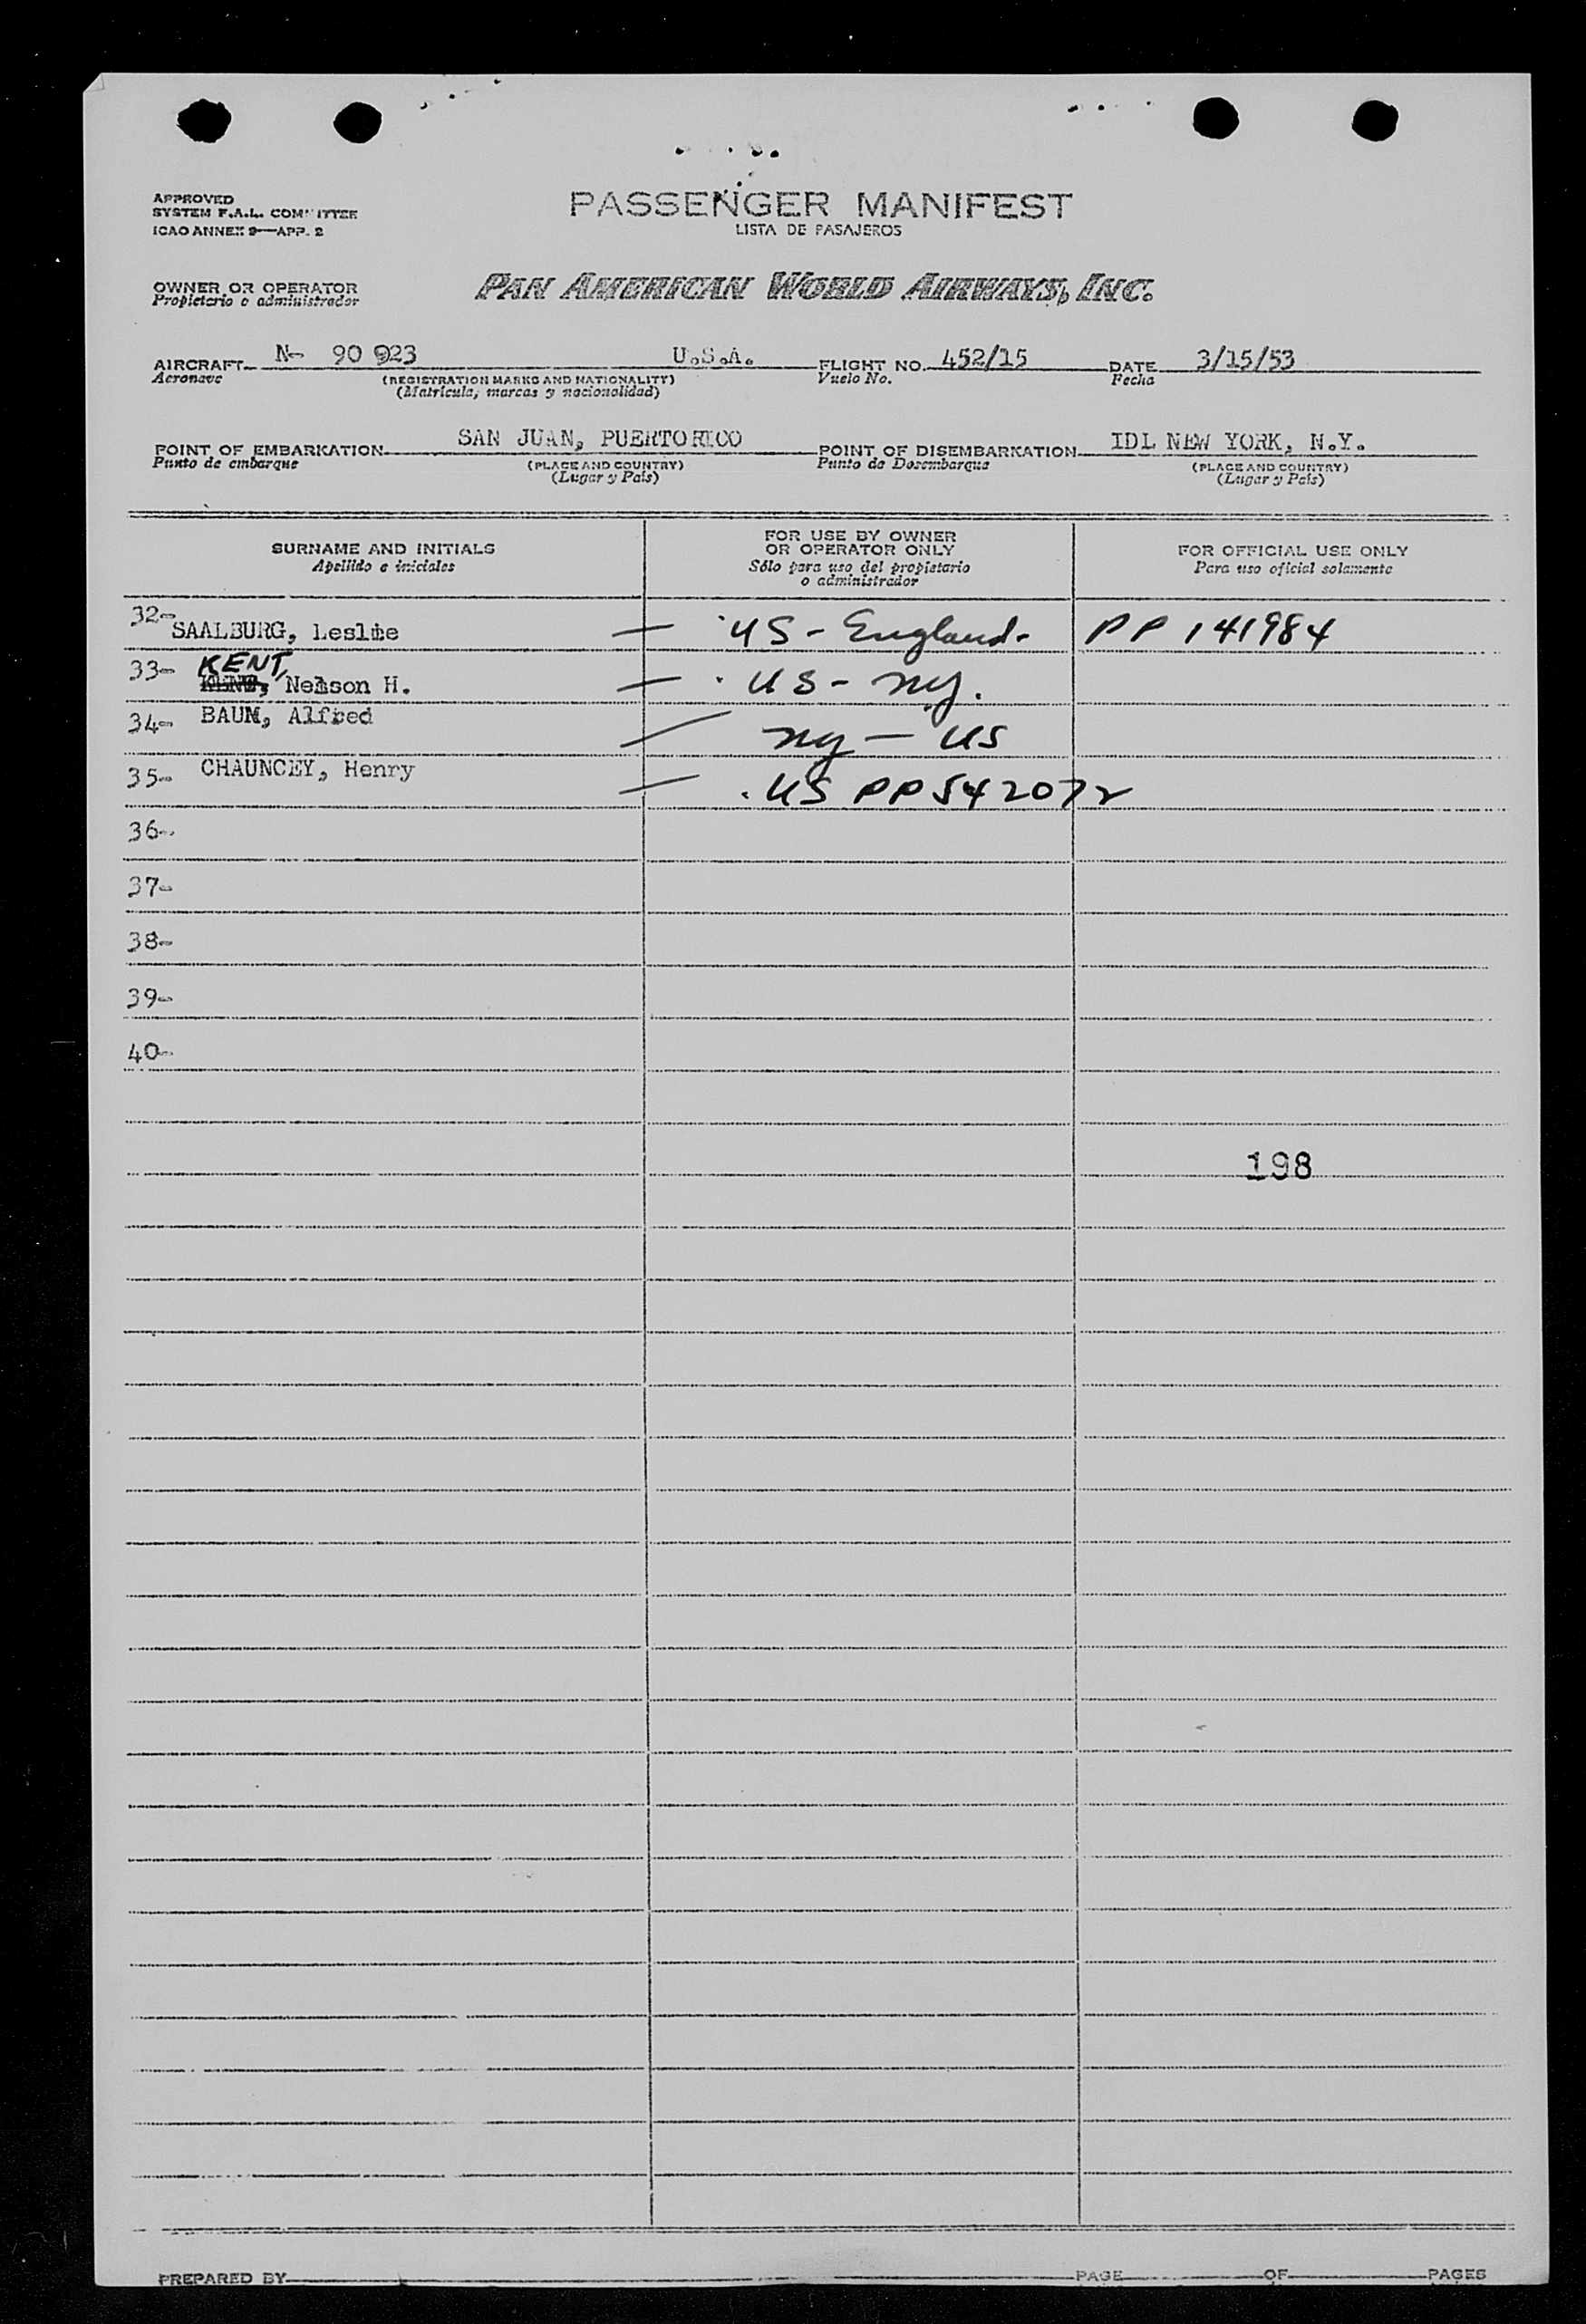 APPROVED
SYSTEM F.A.L. COMMITTEE
ICAO ANNEX 9—APP. 2
PASSENGER MANIFEST
LISTA DE PASAJEROS
OWNER OR OPERATOR
Propietario o administrador
PAN AMERICAN WORLD AIRWAYS, INC.
AIRCRAFT N- 90 923 U.S.A. FLIGHT NO. 452/15 DATE 3/15/53
Aeronave (REGISTRATION MARKS AND NATIONALITY) Vuelo No. Fecha
(Matrícula, marcas y nacionalidad)
POINT OF EMBARKATION SAN JUAN, PUERTO RICO POINT OF DISEMBARKATION IDL NEW YORK, N.Y.
Punto de embarque (PLACE AND COUNTRY) Punto de Desembarque (PLACE AND COUNTRY)
(Lugar y País) (Lugar y País)
SURNAME AND INITIALS
Apellido e iniciales
FOR USE BY OWNER
OR OPERATOR ONLY
Sólo para uso del propietario
o administrador
FOR OFFICIAL USE ONLY
Para uso oficial solamente
32- SAALBURG, Leslie — US - England - PP 141984
33- KENT, Nelson H. — US - NY.
34- BAUM, Alfred — NY — US
35- CHAUNCEY, Henry — US PP 542072
36-
37-
38-
39-
40-
198
PREPARED BY PAGE OF PAGES